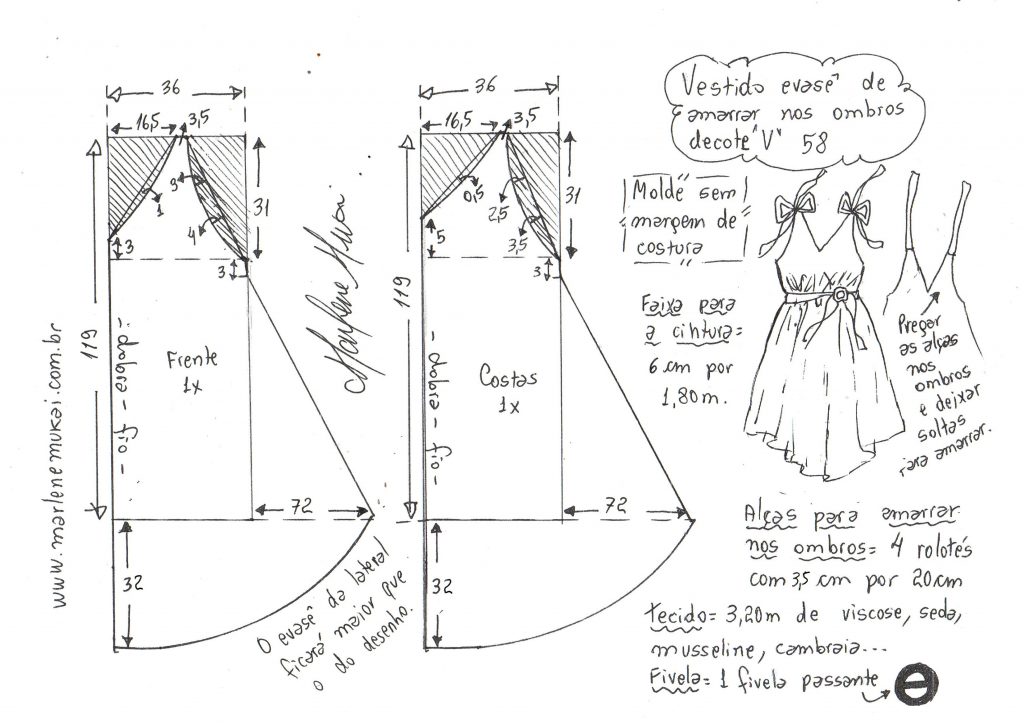 36
16,5 3,5
119
9
1
31
4
3
3
- dobra - fio -
Frente
1x
72
32
O evasê da lateral
ficará maior que
o do desenho.
www.marlenemukai.com.br
Marlene Mukai
36
16,5 3,5
119
0,5
2,5
31
3,5
5
3
- dobra - fio -
Costas
1x
72
32
Vestido evasê de
amarrar nos ombros
decote "V" 58
Molde sem
margem de
costura
Faixa para
a cintura=
6 cm por
1,80m.
Pregar
as alças
nos
ombros
e deixar
soltas
para amarrar.
Alças para amarrar
nos ombros= 4 rolotês
com 3,5 cm por 20cm
Tecido= 3,20m de viscose, seda,
musseline, cambraia...
Fivela= 1 fivela passante